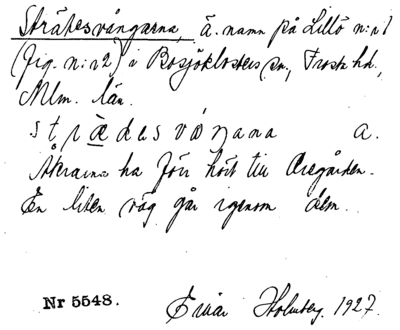 Sträkesvångarna, ä. namn på Lillö n:r 1
(fig. n:r 2) i Bosjöklosters sn, Frosta hd,
Mlm. län.
strädesvånana a.
Åkrarna ha förr hört till Oregården.
En liten väg går igenom dem.
Nr 5548. Einar Holmberg 1927.